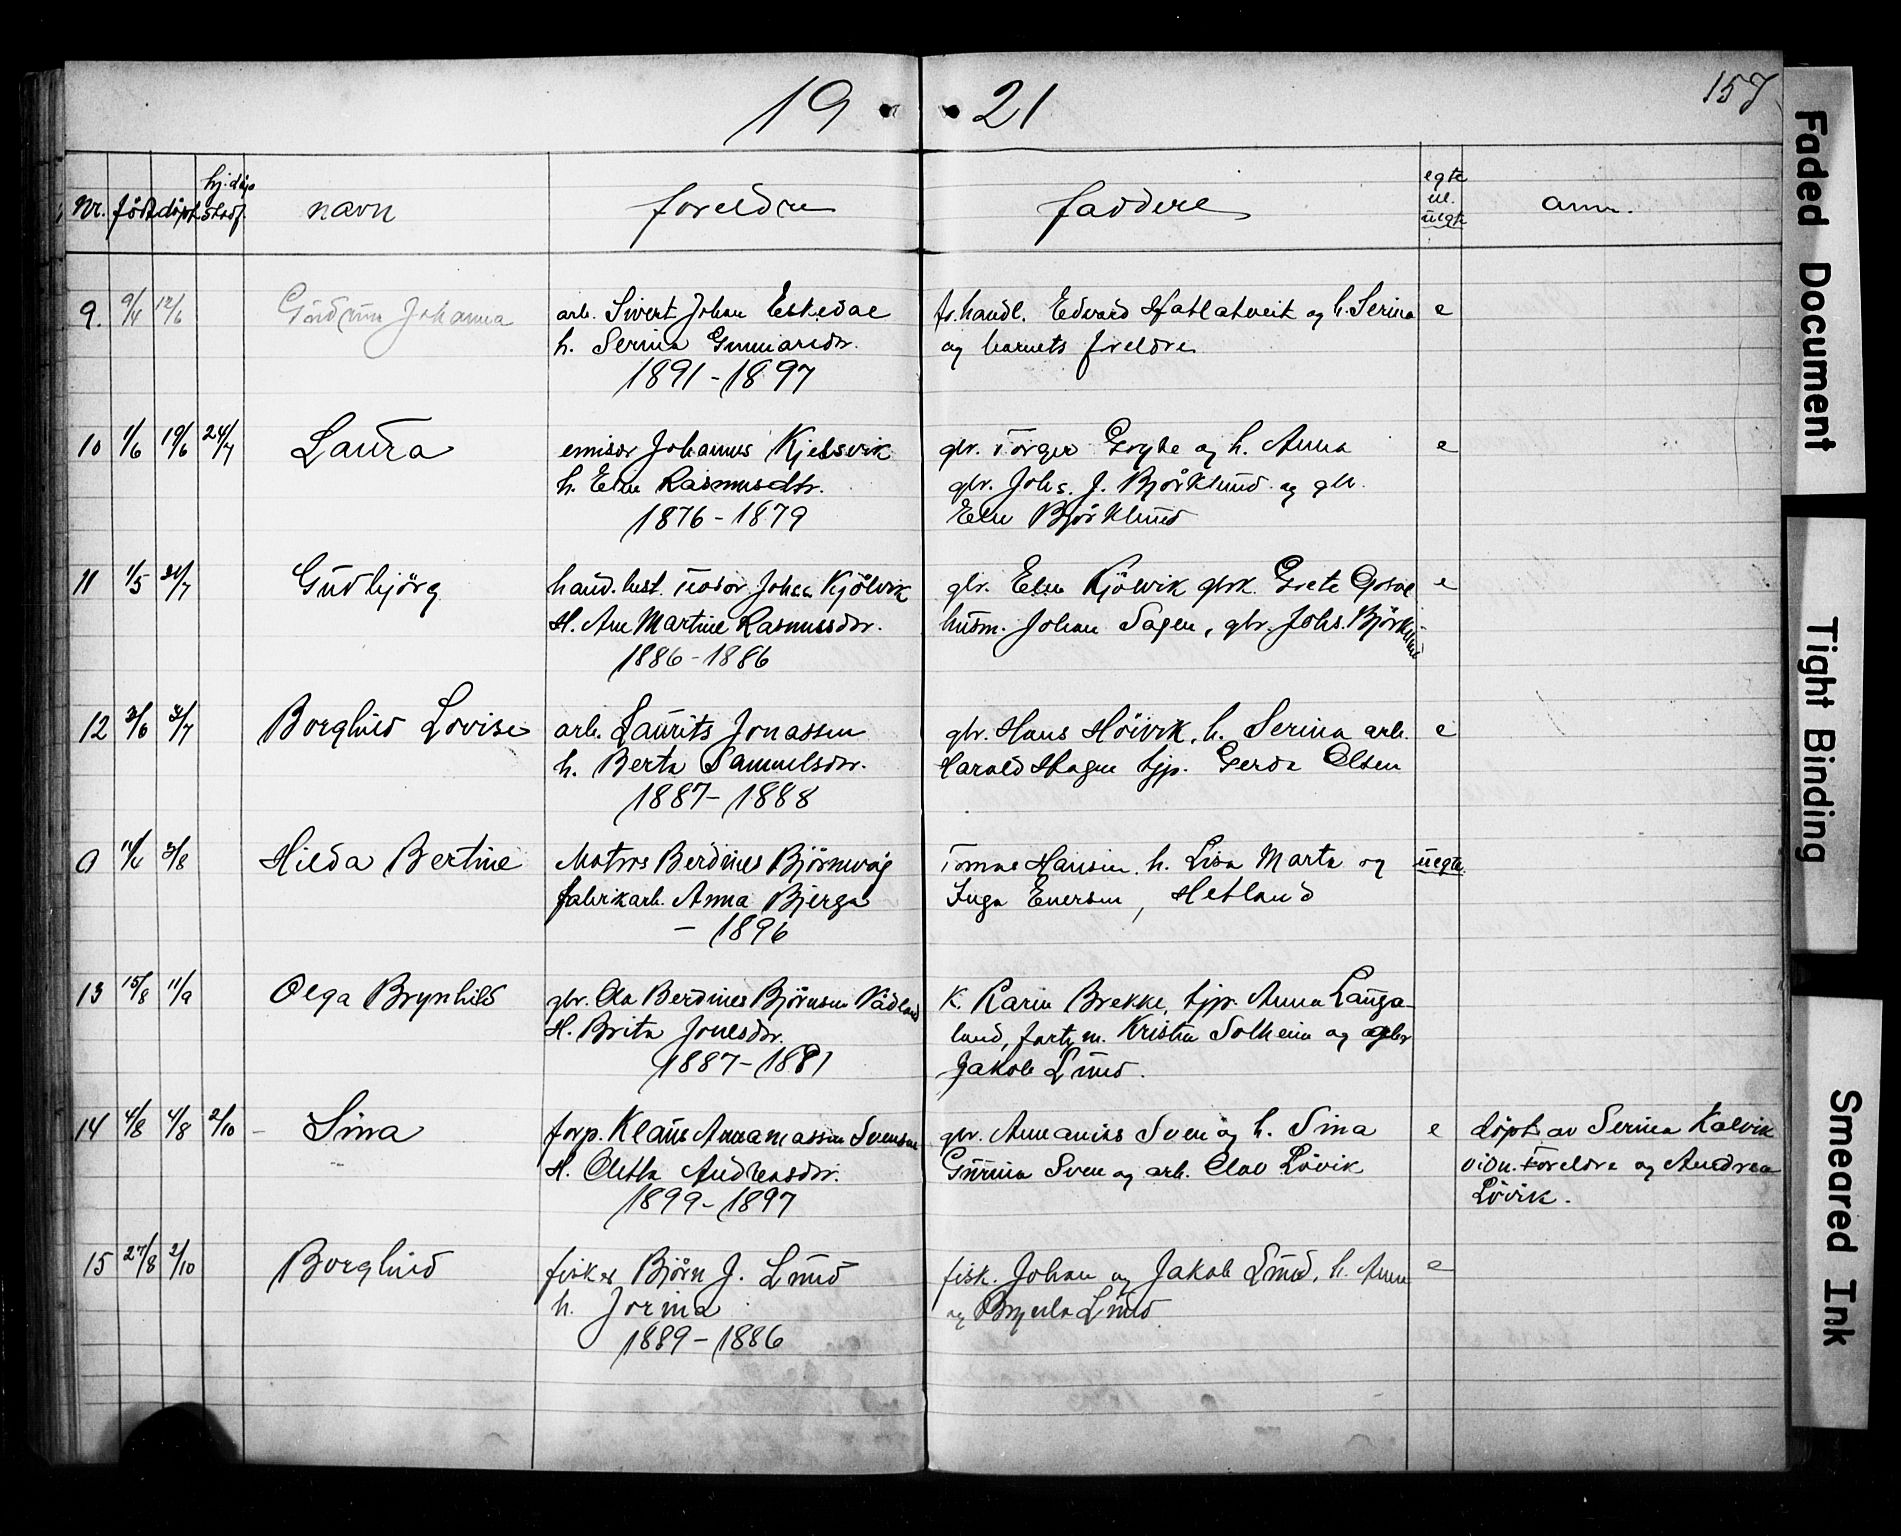 19 21
157
Nr. född döpt hj.döp stadf. navn foreldre faddere egte el. uegte anm.
9. 9/4 12/6 Gudrun Johanna
arb. Sivert Johan Eskedal
h. Serina Gunnarsdtr.
1891-1897
fv.handl. Edvard og h. Serina e
og barnets foreldre
10 1/6 19/6 24/7 Laura
emisær Johannes Kjelsvik
h. Elen Rasmusdtr.
1876-1879
gbr. Torger og h. Anna e
gbr. Johs. J. Björklund og gbr.
Elen Björklund
11 1/5 Gudbjörg
Teodor Johan Kjölvik
H. Ane Martine Rasmusdtr.
1886-1886
gbr. Elen Kjölvik gbrk. Grete e
husm. Johan Sagen, gbr. Johs. Björklund
12 Borghild Lovise
arb. Laurits Jonassen
h. Berta Samuelsdtr.
1887-1888
gbr. Hans Höivik, h. Serina arb. e
Harald Hagen tjp. Gerda Olsen
0 Hilda Bertine
Matros Berdines Björnevåg
fabrikarb. Anna Bjerga
- 1896
Tomas Hansen h. Lisa Marta og uegte.
Inga Enersen, Hetland
13 15/8 11/9 Olga Brynhild
gbr. Ola Berdines Björnsen Vådland
H. Brita Jonesdtr.
1887-1881
K. Karin Brekke, tjp. Anna Langa-
land, Kristen Solheim og gbr
Jakob Lund.
14 4/8 4/8 2/10 - Sina
forp. Klaus Annaniassen Svensen
H. Oletta Andreasdtr.
1899-1897
gbr. Annanias Sven og h. Sina e
Gurina Sven og arb. Olav Lövik
döpt av Serina Kalvik
vidn. Foreldre og Andrea
Lövik.
15 27/8 2/10 Borghild
fisker Björn J. Lund
h. Jorina
1889-1886
fisk. Johan og Jakob Lund, h. Anne e
og Lund
Faded Document
Tight Binding
Smeared Ink